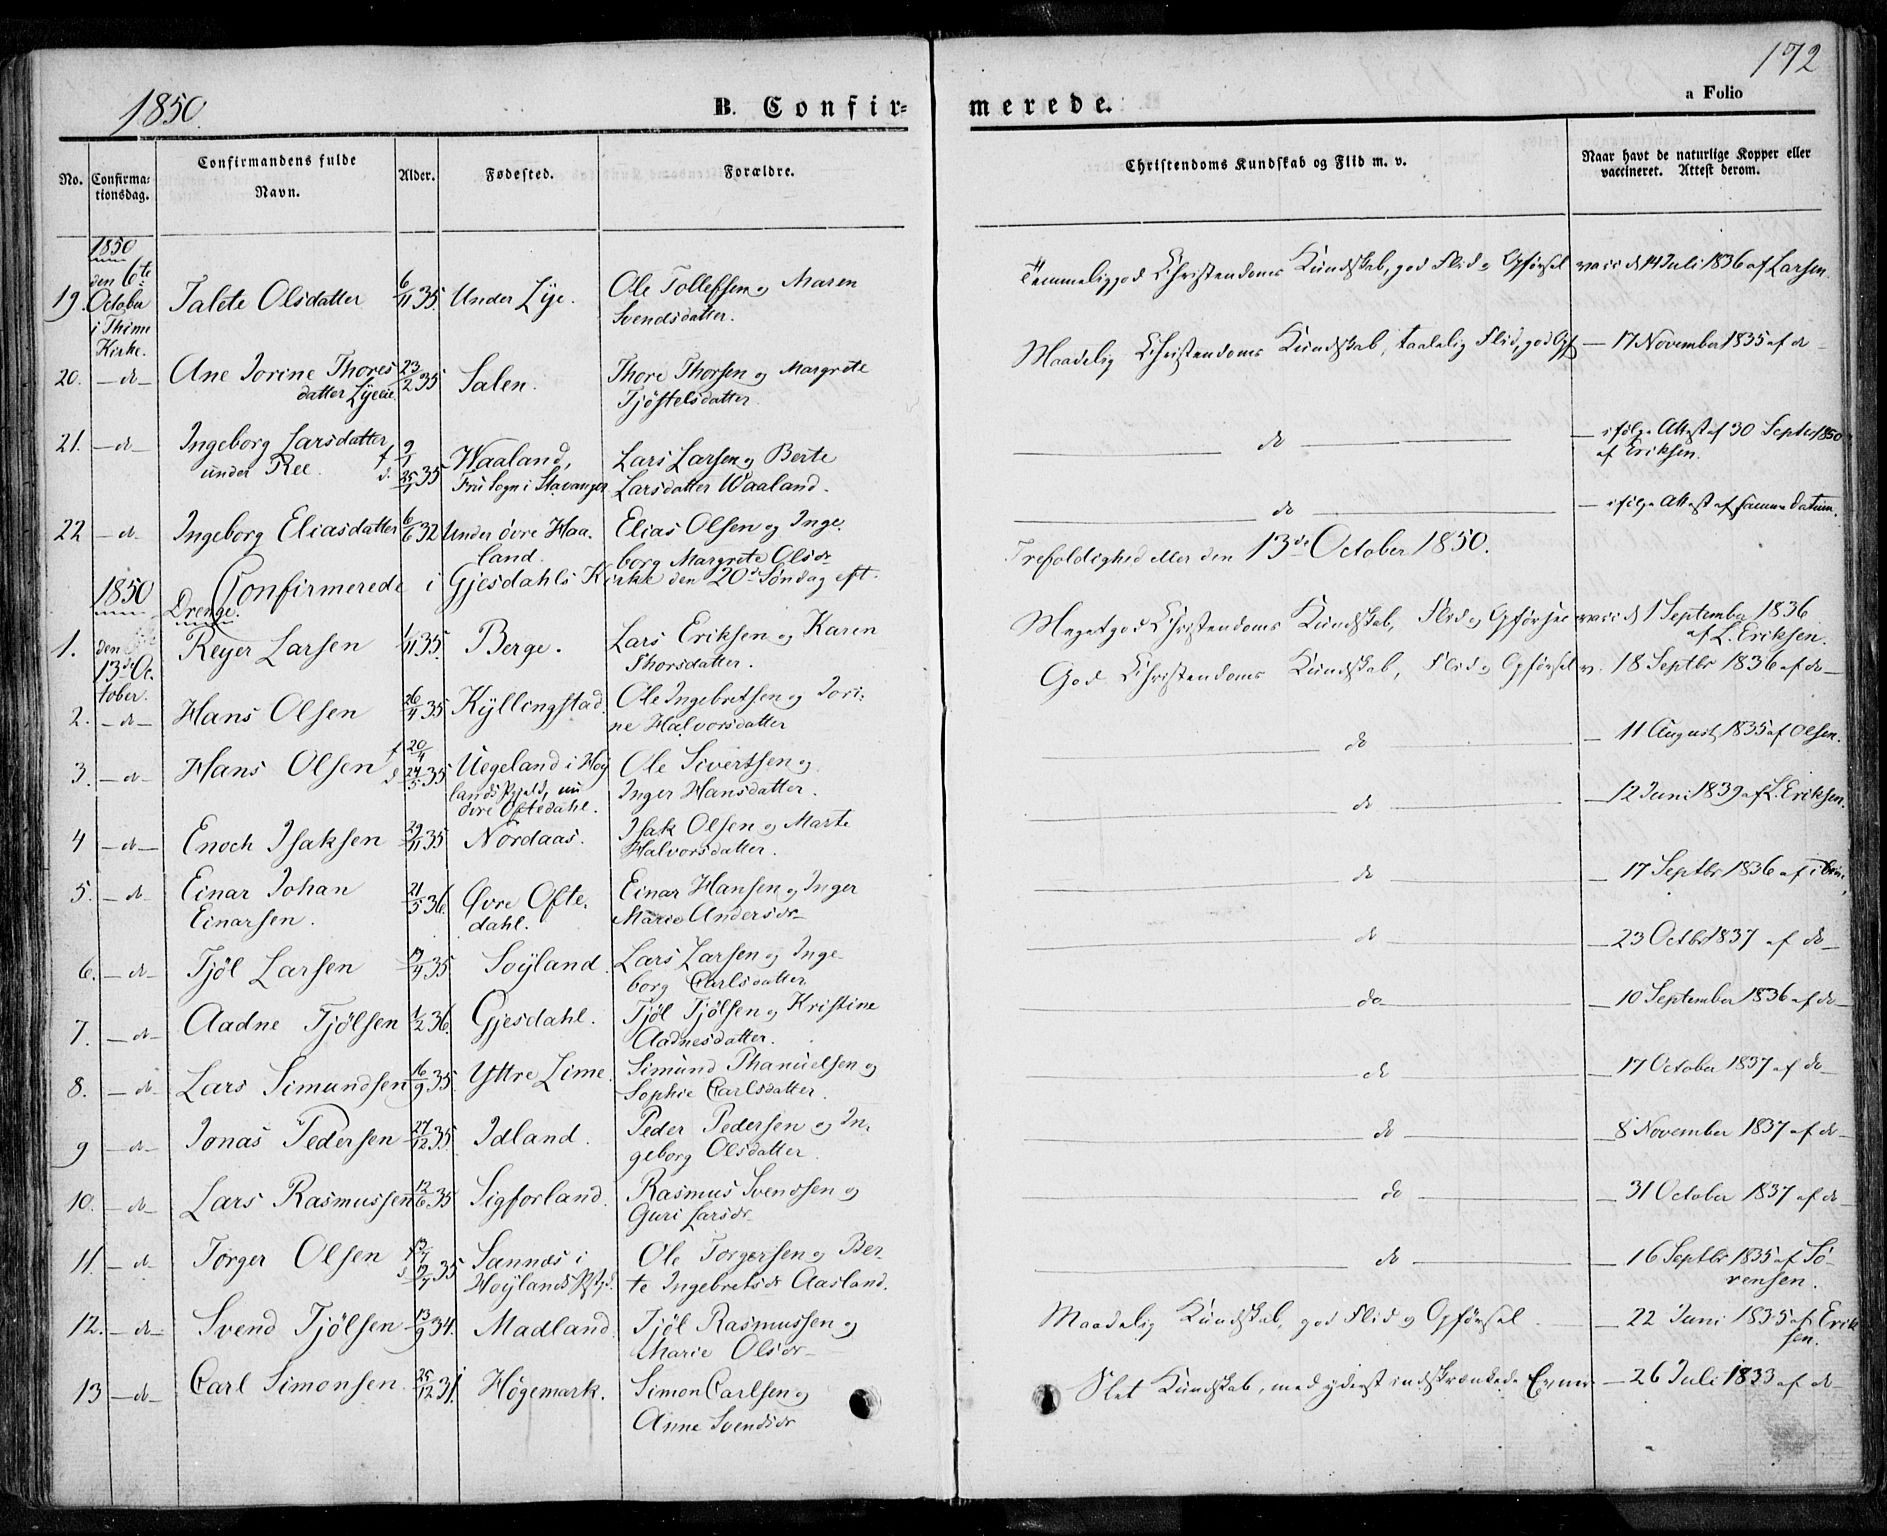 172
1850.
B. Confir=
merede.
a Folio
No.
Confirma=
tionsdag.
Confirmandens fulde
Navn.
Alder.
Fødested.
Forældre.
Christendoms Kundskab og Flid m. v.
Naar havt de naturlige Kopper eller
vaccineret. Attest derom.
1850
den 6te
October
i Thime
Kirke.
19. Talete Olsdatter 6/11 35. Under Lye. Ole Tollefsen og Maren
Svendsdatter.
Temmelig god Christendoms Kundskab, god Flid og Opførsel vacc. d. 14 Juli 1836 af Larsen.
20. —do— Ane Jorine Thores 23/2 35 Salen. Thore Thorsen og Margrete
datter Lyeeie. Tjöstelsdatter.
Maadelig Christendoms Kundskab, taalelig Flid, god Opf — 17 November 1835 af do —
21. —do— Ingeborg Larsdatter f 9/1 Waaland, Lars Larsen og Berte
under Ree. d. 25/1 35 Fru Sogn i Stavanger Larsdatter Waaland.
do — ifølge Attest af 30 Septbr 1850
af Eriksen.
22 —do— Ingeborg Eliasdatter 6/6 32 Under övre Haa- Elias Olsen og Inge-
land. borg Margrete Olsdr
do — ifølge Attest af samme Datum.
1850 Confirmerede i Gjesdahls Kirke den 20de Søndag eft. Trefoldighed eller den 13de October 1850.
Drenge.
1. den 13de Oc- Reyer Larsen 1/11 35. Berge. Lars Eriksen og Karen
tober. Thorsdatter.
Meget god Christendoms Kundskab, Flid og Opførsel vacc. d. 1 September 1836
af L. Eriksen.
2. —do— Hans Olsen 26/4 35 Kyllingstad. Ole Ingebretsen og Jori-
ne Halvorsdatter
God Christendoms Kundskab, Flid og Opførsel v. 18 Septbr 1836 af do—
3. —do— Hans Olsen f 20/4 d 24/5 35 Uegeland i Høy Ole Sivertsen og
lands Pgjeld, nu Inger Hansdatter.
övre Oftedahl.
do — 11 August 1835 af Olsen.
4 —do— Enoch Isaksen 29/11 35 Nordaas. Isak Olsen og Marte
Halvorsdatter.
do — 12 Juni 1839 af L. Eriksen.
5. —do Einar Johan 21/5 36. Øvre Ofte- Einar Hansen og Inger
Einarsen. dahl. Marie Andersdr—
do — 17 Septbr 1836 af
6. —do— Tjøl Larsen 19/4 35 Soyland. Lars Larsen og Inge-
borg Carlsdatter
do — 23 Octbr 1837 af do—
7. —do— Aadne Tjølsen 1/2 36. Gjesdahl. Tjøl Tjølsen og Kristine
Aadnesdatter.
do — 10 September 1836 af do—
8. —do Lars Simundsen 16/9 35. Yttre Lime. Simund Phanuelsen og
Sophie Carlsdatter.
do — 17 October 1837 af do—
9 —do— Jonas Pedersen 27/12 35. Idland. Peder Pedersen og In-
geborg Olsdatter.
do — 8 November 1837 af do—
10. —do— Lars Rasmussen 12/6 35 Sigforland. Rasmus Svendsen og
Guri Larsdr—
do — 31 October 1837 af do—
11. —do— Torger Olsen 35 Sannes i Ole Torgersen og Ber-
Hoylands te Ingebretsdr Aasland.
do — 16 Septbr 1835 af Sö-
rensen.
12. —do— Svend Tjølsen 13/9 34. Madland. Tjöl Rasmussen og
Marie Olsdr—
Maadelig Kundskab, god Flid og Opførsel. — 22 Juni 1835 af Erik
sen.
13 —do— Carl Simonsen 25/12 31. Högemark. Simon Carlsen og
Anne Svendsdr
Slet Kundskab, med yderst indskrænkede Evner — 26 Juli 1833 af do—